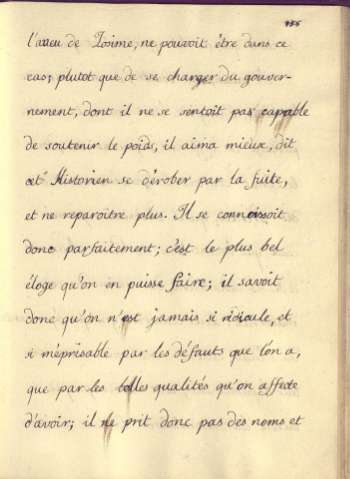 155
l'aveu de Zosime, ne pouvoit être dans ce
cas; plutot que de se charger du gouver-
nement, dont il ne se sentoit pas capable
de soutenir le poids, il aima mieux, dit
cet Historien se dérober par la fuite,
et ne reparoitre plus. Il se connoissoit
donc parfaitement; c'est le plus bel
éloge qu'on en puisse faire; il savoit
donc qu'on n'est jamais si ridicule, et
si méprisable par les défauts que l'on a,
que par les belles qualités qu'on affecte
d'avoir; il ne prit donc pas des noms et